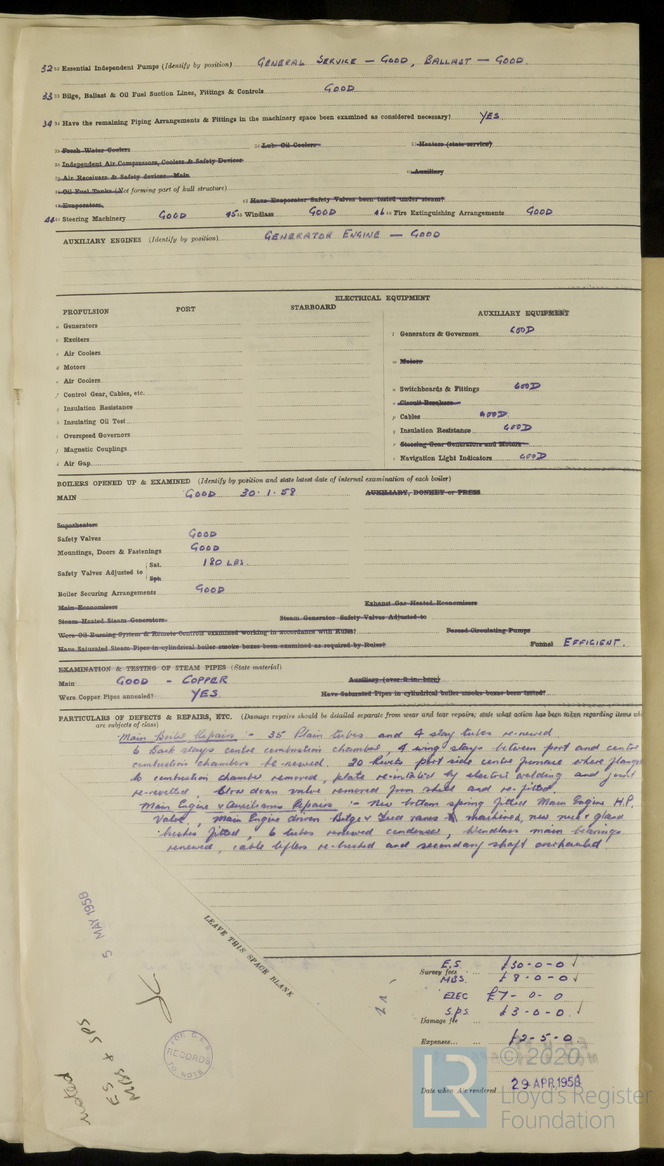 32 Essential Independent Pumps (Identify by position) GENERAL SERVICE — GOOD, BALLAST — GOOD.
33 Bilge, Ballast & Oil Fuel Suction Lines, Fittings & Controls GOOD
34 Have the remaining Piping Arrangements & Fittings in the machinery space been examined as considered necessary? YES.
Fresh Water Coolers Lub. Oil Coolers Heaters (state service)
Independent Air Compressors, Coolers & Safety Devices
Air Receivers & Safety devices. Main Auxiliary
Oil Fuel Tanks (Not forming part of hull structure)
Evaporators, Have Evaporator Safety Valves been tested under steam?
44 Steering Machinery GOOD 45 Windlass GOOD 46 Fire Extinguishing Arrangements GOOD
AUXILIARY ENGINES (Identify by position) GENERATOR ENGINE — GOOD
ELECTRICAL EQUIPMENT
PROPULSION PORT STARBOARD AUXILIARY EQUIPMENT
Generators
Exciters
Air Coolers
Motors
Air Coolers
Control Gear, Cables, etc.
Insulation Resistance
Insulating Oil Test
Overspeed Governors
Magnetic Couplings
Air Gap
Generators & Governors GOOD
Motors
Switchboards & Fittings GOOD
Circuit Breakers
Cables GOOD
Insulation Resistance GOOD
Steering Gear Generators and Motors
Navigation Light Indicators GOOD
BOILERS OPENED UP & EXAMINED (Identify by position and state latest date of internal examination of each boiler)
MAIN GOOD 30·1·58 AUXILIARY, DONKEY or PRESS
Superheaters
Safety Valves GOOD
Mountings, Doors & Fastenings GOOD
Safety Valves Adjusted to Sat. 180 LBS.
Sph
Boiler Securing Arrangements GOOD
Main Economisers Exhaust Gas Heated Economisers
Steam Heated Steam Generators Steam Generator Safety Valves Adjusted to
Were Oil Burning System & Remote Controls examined working in accordance with Rules? Forced Circulating Pumps
Have Saturated Steam Pipes in cylindrical boiler smoke boxes been examined as required by Rules? Funnel EFFICIENT.
EXAMINATION & TESTING OF STEAM PIPES (State material)
Main GOOD – COPPER Auxiliary (over 3 in. bore)
Were Copper Pipes annealed? YES. Have Saturated Pipes in cylindrical boiler smoke boxes been tested?
PARTICULARS OF DEFECTS & REPAIRS, ETC. (Damage repairs should be detailed separate from wear and tear repairs; state what action has been taken regarding items wh
are subjects of class)
Main Boiler Repairs :- 35 Plain tubes and 4 stay tubes re-newed.
6 back stays centre combustion chamber, 4 wing stays between port and centre
combustion chambers re-newed. 20 Rivets port side centre furnace where flanged
to combustion chamber removed, plate re-instated by electric welding and joint
re-rivetted, blow down valve removed from shell and re-fitted.
Main Engine & Auxiliaries Repairs :- New bottom spring fitted Main Engine H.P.
Valve, Main Engine driven Bilge & Feed rams machined, new neck & gland
bushes fitted, 6 tubes renewed condenser, Windlass main bearings
renewed, cable lifters re-bushed and secondary shaft overhauled
LEAVE THIS SPACE BLANK
5 MAY 1958
Survey fees E.S £30-0-0
MBS. £8-0-0
ELEC £7-0-0
S.P.S. £3-0-0
Damage fee
Expenses £2-5-0
Date when A/c rendered 29 APR 1958
noted
ES & SPS
MBS &
RECORDS
© 2020
LR
Lloyd's Register
Foundation